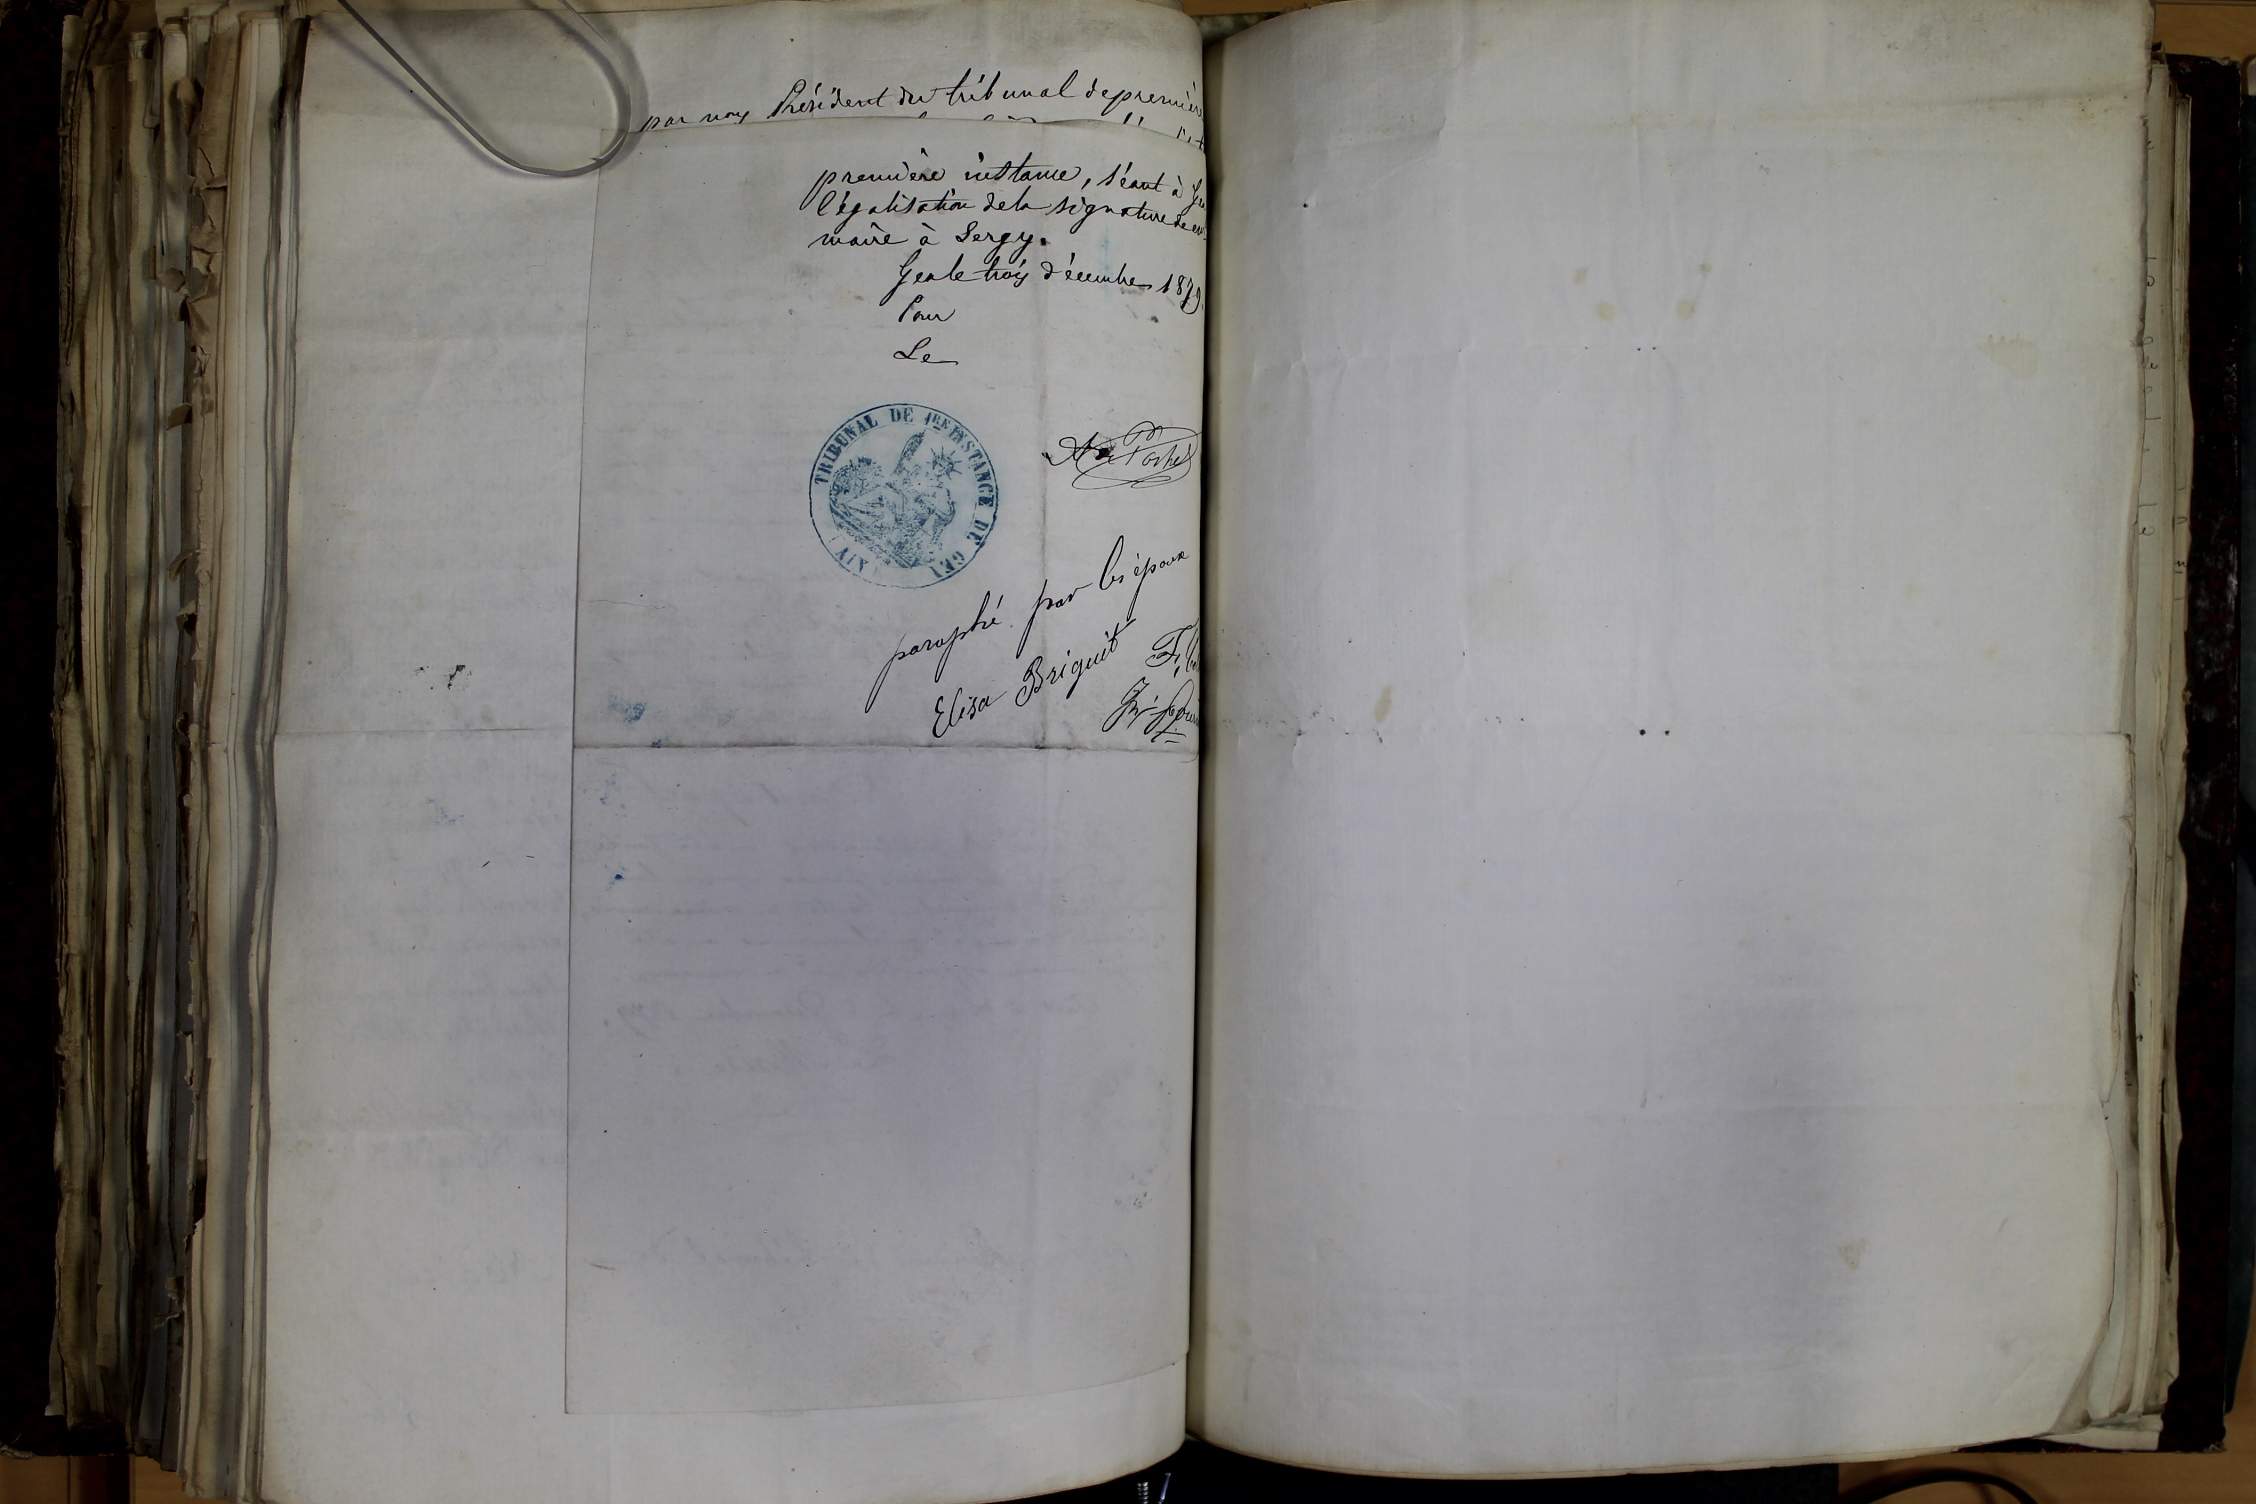 par nous Président du tribunal de première
première instance, séant à Gex
légalisation de la signature de
maire à Sergy.
Gex le trois décembre 1879.
Pour
Le
TRIBUNAL DE 1RE INSTANCE DE GEX
(AIN)
paraphé par les époux
Elisa Briguet